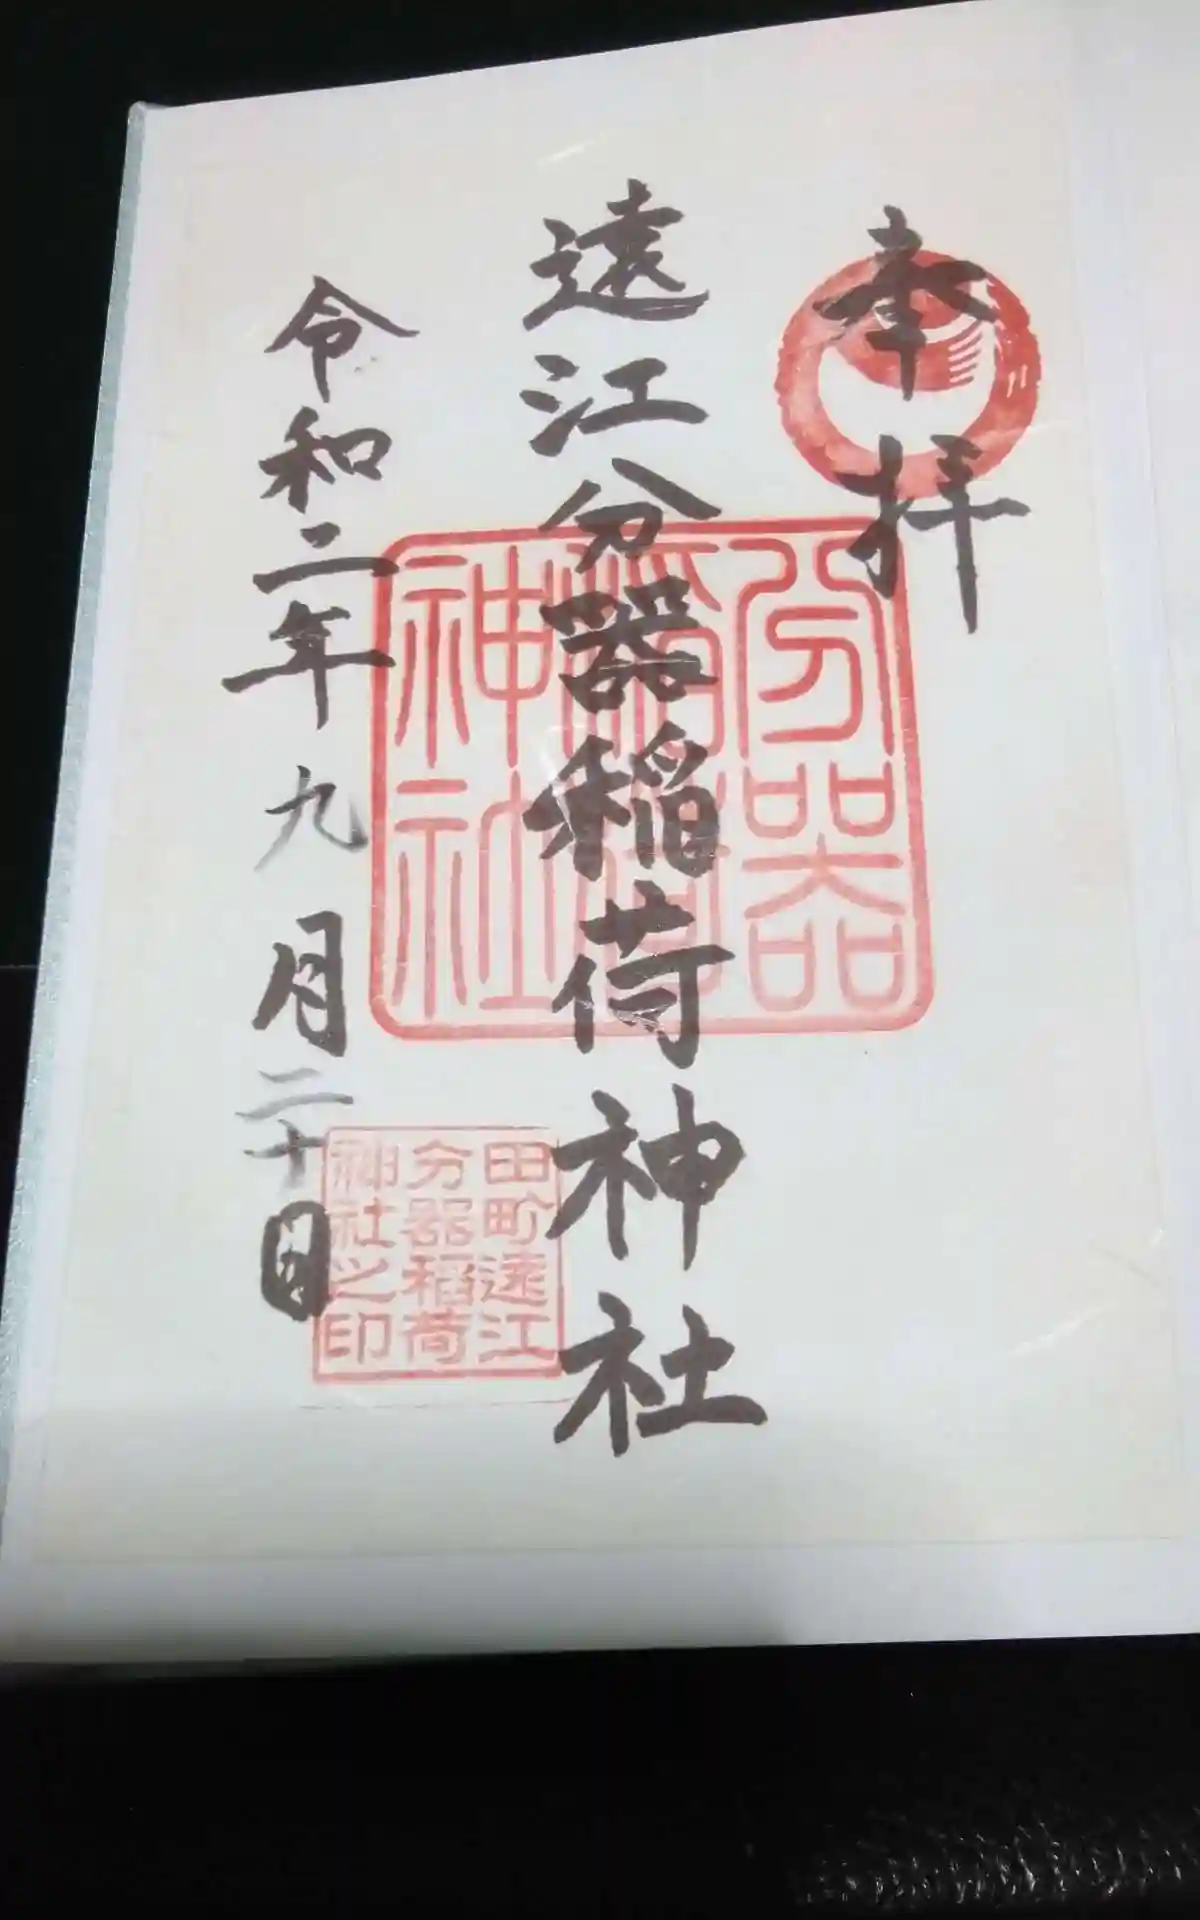 奉拝
遠江分器稲荷神社
令和二年九月二十日
分器
稲荷
神社
田町遠江
分器稲荷
神社之印